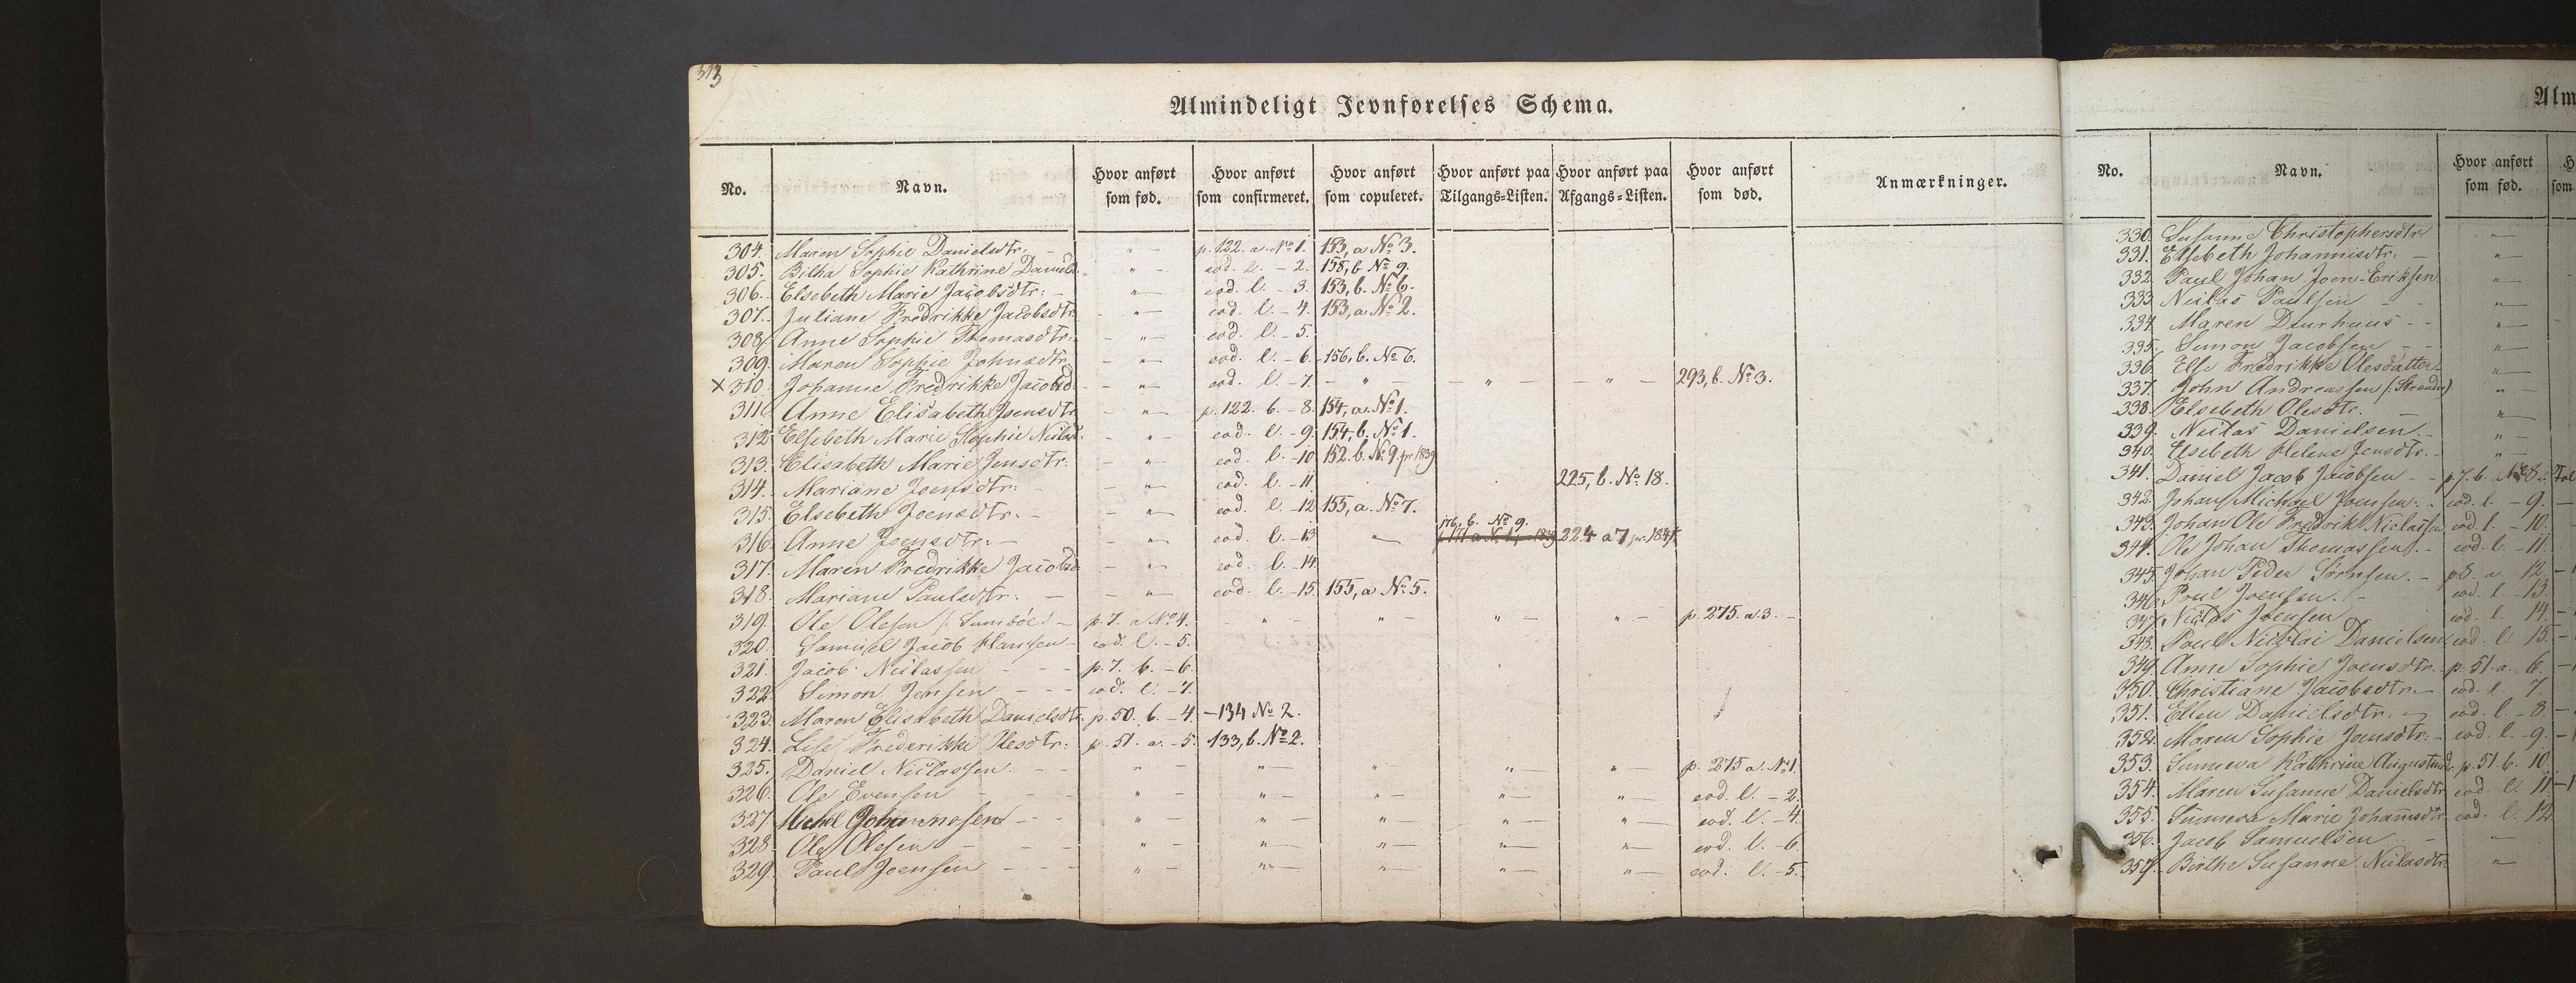 313
Almindeligt Jevnførelses Schema.
No. Navn. Hvor anført som fød. Hvor anført som confirmeret. Hvor anført som copuleret. Hvor anført paa Tilgangs-Listen. Hvor anført paa Afgangs-Listen. Hvor anført som død. Anmærkninger.
304. Maren Sophie Danielsdtr. - " - p. 122. a. No 1. 153, a No 3.
305. Bilha Sophie Kathrine Danielsd. " - eod. l. - 2. 158, b No 9.
306. Elsebeth Marie Jacobsdtr: - " - eod. l. - 3. 153, b. No 6.
307. Juliane Fredrikke Jacobsdtr. - " - eod. l. - 4. 153, a No 2.
308. Anne Sophie Thomasdtr. - " - eod. l. - 5.
309. Maren Sophie Johnsdtr. - " - eod. l. - 6. 156, b. No 6.
x 310. Johanne Fredrikke Jacobsd. - " - eod. l. - 7. - " - - " - - " - 293, b. No 3.
311. Anne Elisabeth Joensdtr. - " - p. 122. b. - 8. 154, a. No 1.
312. Elsebeth Marie Sophie Niclasd. - " - eod. l. - 9. 154, b. No 1.
313. Elisabeth Marie Jensdtr. - " - eod. l. - 10 152. b. No 9. pr 1839
314. Mariane Joensdtr: - " - eod. l. - 11 225, b. No 18.
315. Elsebeth Joensdtr. - - " - eod. l. - 12 155, a. No 7.
176, b. No 9.
316. Anne Joensdtr: - - " - eod. l. - 13 " - 224 a 7 pr. 1841
317. Maren Fredrikke Jacobsd. - " - eod. l. - 14.
318. Mariane Paulsdtr: - - " - eod. l. - 15. 155, a No 5.
319. Ole Olesen (: Sumböe :) - p. 7. a No 4. - " - " - " - " - p. 275. a. 3. -
320. Samuel Jacob Hansen - eod. l. - 5.
321. Jacob Niclassen - - - p. 7. b. - 6.
322. Simon Jensen - - - eod. l. - 7.
323. Maren Elisabeth Danielsdtr. p. 50. b. - 4. - 134 No 2.
324. Lise Frederikke Olesdtr: p. 51. a. - 5. 133, b. No 2.
325. Daniel Niclassen. - - " - " - " - " - " - p. 275 a. No 1.
326. Ole Evensen - - - " - " - " - " - " - eod. l. - 2.
327. Michel Johannesen - - " - " - " - " - " - eod. l. - 4.
328. Ole Olesen - - - " - " - " - " - " - eod. l. - 6.
329. Paul Joensen - - - " - " - " - " - " - eod. l. - 5.
Alm
No. Navn. Hvor anført som fød. H som
330. Susanne Christophersdtr. " -
331. Elsebeth Johannisdtr. - " -
332. Paul Johan Joen-Eriksen. " -
333. Niclas Paulsen - - " -
334. Maren Diurhuus - - " -
335. Simon Jacobsen - - " -
336. Else Fredrikke Olesdatter. " -
337. John Andreassen (: Strender) " -
338. Elsebeth Olesdtr. - " -
339. Niclas Danielsen. - " -
340. Elsebeth Helene Jensdtr. - " -
341. Daniel Jacob Jacobsen - - p. 7. b. No 8.
342. Johan Michael Joensen. - eod. l. - 9.
343. Johan Ole Fredrik Niclassen eod. l. - 10.
344. Ole Johan Thomassen. - eod. l. - 11.
345. Johan Peder - p. 8. a. 12.
346. Poul Joensen. - eod. l. - 13.
347. Niclas Joensen eod. l. 14. -
348. Poul Nicolai Danielsen eod. l. 15. -
349. Anne Sophie Joensdtr. p. 51. a. 6. -
350. Christiane Jacobsdtr. - eod. l. 7.
351. Ellen Danielsdtr. - eod. l. - 8. -
352. Maren Sophie Joensdtr: - eod. l. - 9. -
353. Sunneva Kathrine p. 51. b. 10.
354. Maren Susanne Danielsdtr. eod. l. 11 -
355. Sunneva Marie Johannisdtr. eod. l. 12.
356. Jacob Samuelsen - " -
357. Birthe Susanne Niclasdtr. " -